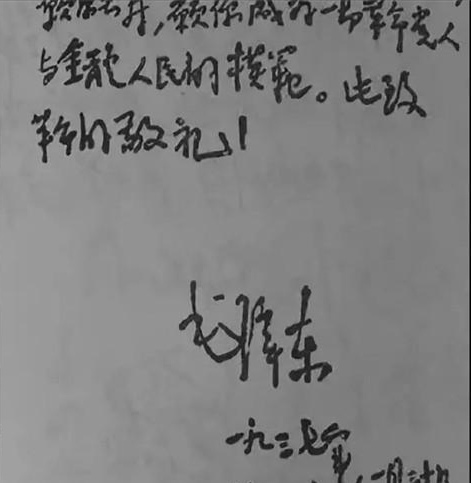 願你成为一切革命党人
与全體人民的模範。此致
革命的敬礼!
毛澤东
一九三七年
一月三十